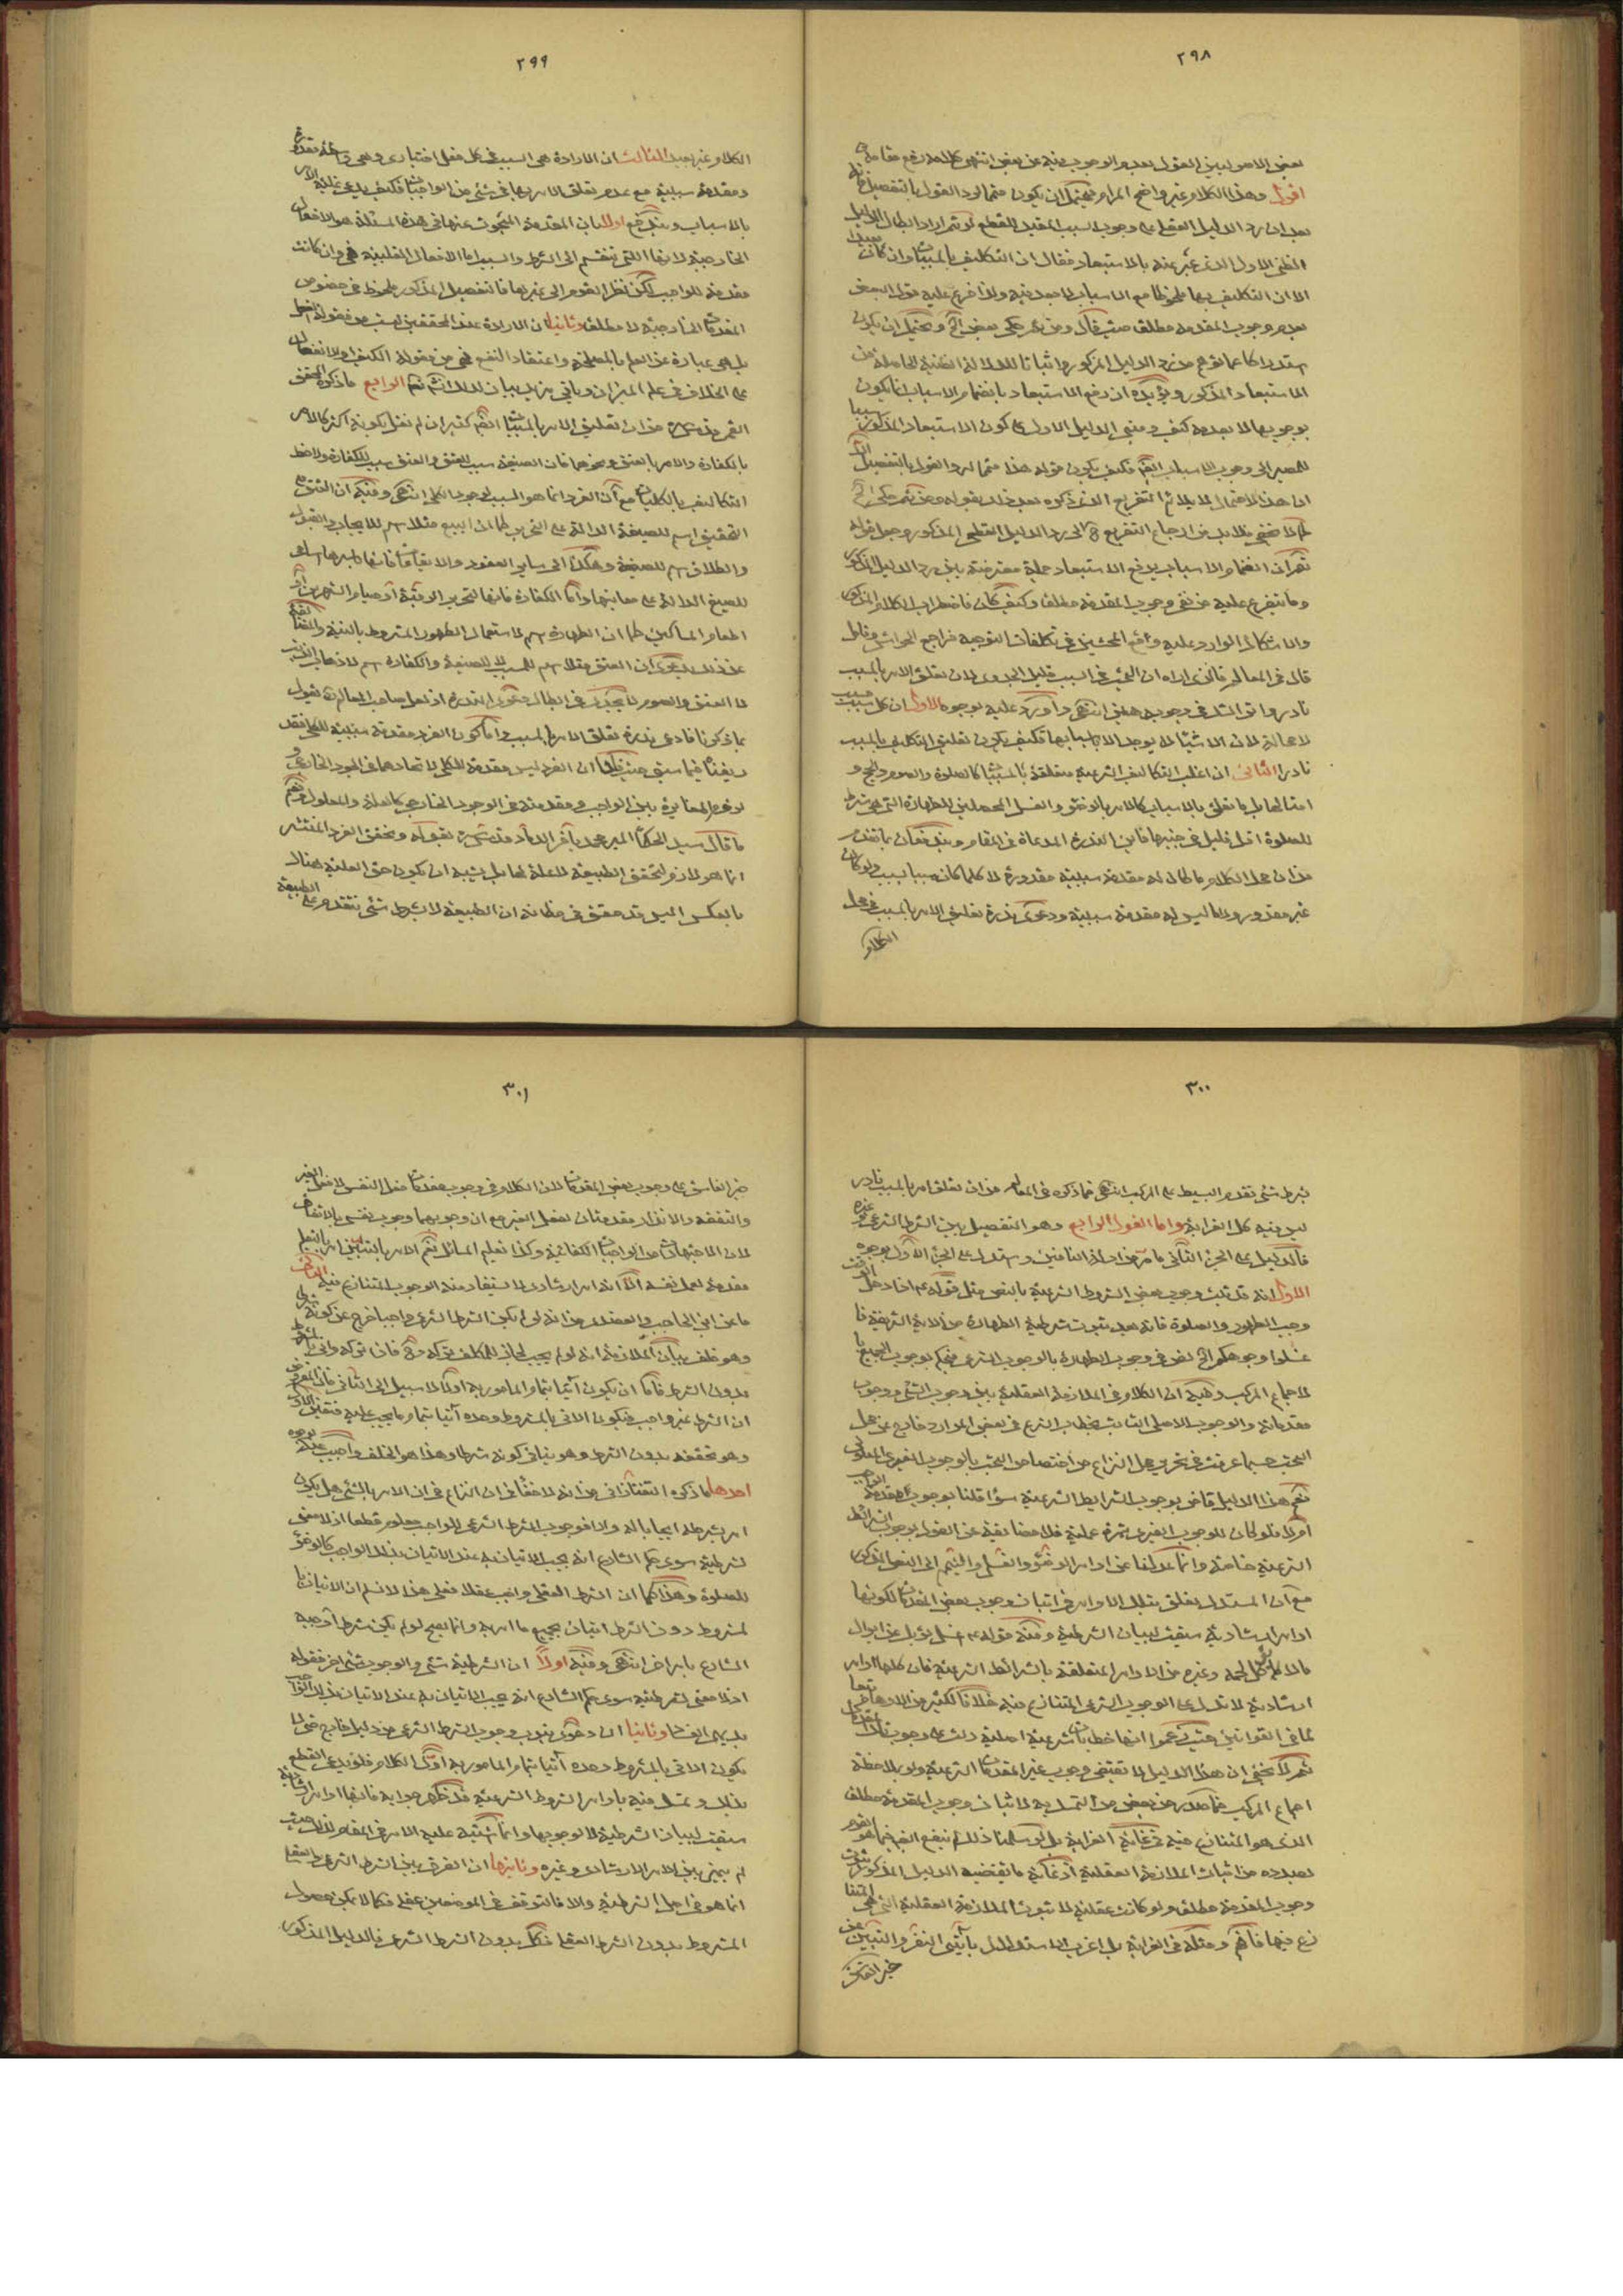 ٢٩٨
بعض الاصوليين القول بعدم الوجوب فيه عن بعض انتهى كلامه رفع مقامه
اقول وهذا الكلام غير واضح المرام فيحتمل ان يكون متمما لرد القول بالتفصيل
بعد ان رد الدليل العقلى على وجوب السبب المفيد للقطع
الظنى الاول الذى عبر عنه بالاستبعاد فقال ان التكليف بالمسببات وان كان
الا ان التكليف بها ملحوظا مع الاسباب لا بعد فيه ولذا فرع عليه قول البعض
بعدم وجوب المقدمة مطلقا حيث قال ومن ثم حكى بعض الخ ويحتمل ان يكون
استدراكا عما توهم من رد الدليل المزبور واثباتا للدلالة الظنية الحاصلة من
الاستبعاد المذكور ويؤيده ان رفع الاستبعاد بانضمام الاسباب انما يكون
بوجوبها لا بعدمه كيف ومبنى الدليل الاول على كون الاستبعاد المذكور سببا
للمصير الى وجوب الاسباب فكيف يكون قوله هذا متمما لرد القول بالتفصيل
ان هذا الاحتمال لا يلائم التفريع الذى ذكره بعد ذلك بقوله ومن ثم حكى الخ
كما لا يخفى فلا بد من ارجاع التفريع الى رد الدليل القطعى المذكور وجعل قوله
ثم ان انضمام الاسباب يرفع الاستبعاد جملة معترضة بين رد الدليل المذكور
وما يتفرع عليه من نفى وجوب المقدمة مطلقا وكيف كان فاضطراب الكلام المذكور
والاشكال الوارد عليه اوقع المحشين فى تكلفات التوجيه فراجع الحواشى وتامل
قال فى المعالم فالذى اراه ان البحث فى السبب قليل الجدوى لان تعلق الامر بالمسبب
نادر واثر الشك فى وجوبه هين انتهى واورد عليه بوجوه الاول ان كل مسبب
لا محالة لان الاشياء لا يوجد الا باسبابها فكيف يكون تعليق التكليف بالمسبب
نادرا الثانى ان اغلب التكاليف الشرعية متعلقة بالمسببات كالصلوة والصوم والحج و
امثالها بل ما تعلق بالاسباب كالامر بالوضوء والغسل المحصلين للطهارة التى هى شرط
للصلوة اقل قليل فى جنبها فاين الندرة المدعاة فى المقام ويندفعان بما تقدم
من ان محل الكلام ما كان له مقدمة سببية مقدورة لا كلما كان مسببا بسبب ولو كان
غير مقدور ولا ما ليس له مقدمة سببية ودعوى ندرة تعليق الامر بالمسبب فى محل
الكلام
٢٩٩
الكلام غير بعيد الثالث ان الارادة هى السبب فى كل فعل اختيارى وهى
ومقدمة سببية مع عدم تعلق الامر بها فى شئ من الواجبات فكيف يدعى غلبة الامر
بالاسباب ويندفع اولا بان المقدمة المبحوث عنها فى هذه المسئلة هو الافعال
الخارجية لانها التى تنقسم الى الشرط والسبب اما الافعال القلبية فهى وان كانت
مقدمة للواجب لكن نظر القوم الى غيرها فالتفصيل المذكور ملحوظ فى خصوص
المقدمات الخارجية لا مطلقا وثانيا ان الارادة عند المحققين ليست من مقولة الفعل
بل هى عبارة عن العلم بالمصلحة واعتقاد النفع فهى من مقولة الكيف او الانفعال
على الخلاف فى علم الميزان وياتى مزيد بيان لذلك انشاء الله تعالى الرابع ما ذكره المحقق
القمى قدس سره من ان تعليق الامر بالمسببات ايضا كثير ان لم نقل بكونه اكثر كالامر
بالكفارة والامر بالعتق ونحوهما فان الصيغة سبب للعتق والعتق سبب للكفارة ولاحظ
التكاليف بالكليات مع ان الفرد انما هو السبب لوجود الكلى انتهى وفيه ان العتق
التحقيق اسم للصيغة الدالة على التحرير كما ان البيع مثلا اسم للايجاب والقبول
والطلاق اسم للصيغة وهكذا الى ساير العقود والايقاعات فانها باسرها اسامى
للصيغ الدالة على معانيها واما الكفارة فانها لتحرير الرقبة او صيام الشهرين او
اطعام المساكين كما ان الطهارة اسم لاستعمال الطهور المشروط بالنية
عن ذلك بدعوى ان العتق مثلا اسم للمسبب لا للصيغة والكفارة اسم لاذهاب الذنب
لا العتق والصوم لا يجدى فى ابطال دعوى الندرة اذ لعل صاحب المعالم ره يقول
بما ذكرنا فادعى ندرة تعلق الامر بالمسبب واما كون الفرد مقدمة سببية للكلى فقد
زيفناه فيما سبق حيث قلنا ان الفرد ليس مقدمة للكلى لاتحادهما فى الوجود الخارجى و
لزوم المغايرة بين الواجب ومقدمته فى الوجود الخارجى كالعلة والمعلول
ما قال سيد الحكماء المير محمد باقر الداماد قدس سره بقوله وتحقق الفرد المنتشر
انما هو لازم لتحقق الطبيعة لا علة لها بل يشبه ان يكون حق العلية هناك
بالعكس اليس قد حقق فى مظانه ان الطبيعة لا بشرط شئ تتقدم على الطبيعة
٣٠٠
بشرط شئ تقدم البسيط على المركب انتهى فما ذكره فى المعالم من ان تعلق امر بالمسبب نادر
ليس فيه كل الغرابة واما القول الرابع وهو التفصيل بين الشرط الشرعى وغيره
فالدليل على الجزء الثانى ما مر من ادلة النافين واستدل على الجزء الاول بوجوه
الاول انه قد ثبت وجوب بعض الشروط الشرعية بالنص مثل قوله ع اذا دخل الوقت
وجب الطهور والصلوة فانه بعد ثبوت شرطية الطهارة من الاية الشريفة فا
غسلوا وجوهكم الخ نص فى وجوب الطهارة بالوجوب الشرعى فيحكم بوجوب الجميع
للاجماع المركب وفيه ان الكلام فى الملازمة العقلية بين وجوب الشئ ووجوب
مقدماته والوجوب الاصلى الثابت بخطاب الشرع فى بعض الموارد خارج عن محل
البحث حسبما عرفت فى تحرير محل النزاع من اختصاص البحث بالوجوب الغيرى المعلولى
نعم هذا الدليل قاض بوجوب الشرايط الشرعية سواء قلنا بوجوب مقدمة الواجب
ام لا فلو كان للوجوب الغيرى ثمرة عملية فلا مضايقة عن القول بوجوب الشرائط
الشرعية خاصة وانما عدلنا عن اوامر الوضوء والغسل والتيمم الى النص المذكور
مع ان المستدل تعلق بتلك الاوامر فى اثبات وجوب بعض المقدمات لكونها
اوامر ارشادية سيقت لبيان الشرطية ومنه قوله ع اغسل ثوبك عن ابوال
ما لا يؤكل لحمه وغيره من الاوامر المتعلقة بالشرائط الشرعية فان كلها اوامر
ارشادية لا تدل على الوجوب الشرعى المتنازع فيه خلافا لكثير من الاوهام
كما فى القوانين حيث زعموا انها خطابات شرعية اصلية دلت على وجوب
ثم لا يخفى ان هذا الدليل لا يقتضى وجوب غير المقدمات الشرعية ولو بملاحظة
اجماع المركب فما صدر من بعض من التمسك به لاثبات وجوب المقدمة مطلقا
الذى هو المتنازع فيه فى غاية الغرابة بل لو سلمنا ذلك لم ينفع
بصدده من اثبات الملازمة العقلية اذ غاية ما يقتضيه الدليل المذكور ثبوت
وجوب المقدمة مطلقا ولو كانت عقلية لا ثبوت الملازمة العقلية التى هى المتنا
زع فيها فافهم ومثله فى الغرابة بل اغرب الاستدلال بآيتى النفر والتبين عن
خبر الفاسق
٣٠١
خبر الفاسق على وجوب بعض المقدمات لان الكلام فى وجوب مقدمات فعل النفس لا فعل الغير
والتفقه والانذار مقدمتان لفعل الغير مع ان وجوبهما وجوب نفسى بالاتفاق
لان الاجتهاد من الواجبات الكفائية وكذا تعليم المسائل نعم الامر بالتبين امر بالتعلم
مقدمة لعمل نفسه الا انه امر ارشادى لا يستفاد منه الوجوب المتنازع فيه الثانى
ما عن ابن الحاجب والعضدى من انه لو لم يكن الشرط الشرعى واجبا خرج عن كونه شرطا
وهو خلف بيان الملازمة انه لو لم يجب لجاز للمكلف تركه وح فان تركه واتى بالمشروط
بدون الشرط فاما ان يكون آتيا بتمام المامور به او لا لا سبيل الى الثانى فان المفروض
ان الشرط غير واجب فيكون الاتى بالمشروط وحده آتيا بتمام ما يجب عليه فتعين الاول
وهو تحققه بدون الشرط وهو ينافى كونه شرطا وهذا هو الخلف واجيب عنه بوجوه
احدها ما ذكره التفتازانى من انه لا خفاء فى ان النزاع فى ان الامر بالشئ هل يكون
امر بشرطه ايجابا له والا فوجوب الشرط الشرعى للواجب معلوم قطعا اذ لا معنى
لشرطيته سوى حكم الشارع انه يجب الاتيان به عند الاتيان بذلك الواجب كالوضوء
للصلوة وهذا كما ان الشرط العقلى واجب عقلا فعلى هذا لا نسلم ان الاتيان با
لمشروط دون الشرط اتيان بجميع ما امر به وانما يصح لو لم يكن شرطا اوجبه
الشارع بامر اخر انتهى وفيه اولا ان الشرطية شئ والوجوب شئ اخر فقوله
اذ لا معنى لشرطيته سوى حكم الشارع انه يجب الاتيان به عند الاتيان بذلك الواجب
بديهى الفساد وثانيا ان دعوى ثبوت وجوب الشرط الشرعى من دليل خارج حتى لا
يكون الاتى بالمشروط وحده آتيا بتمام المامور به اول الكلام فلو يدعى القطع
بذلك وتمسك فيه باوامر الشروط الشرعية فقد ظهر جوابه فانها اوامر ارشادية
سيقت لبيان الشرطية لا لوجوبها وانما اشتبه عليه الامر فى المقام لذلك حيث
لم يميز بين الامر الارشادى وغيره وثانيها ان الفرق بين الشرط الشرعى والعقلى
انما هو فى اصل الشرطية والا فالتوقف فى الموضعين عقلى فكما لا يمكن حصول
المشروط بدون الشرط العقلى فكذا بدون الشرط الشرعى فالدليل المذكور